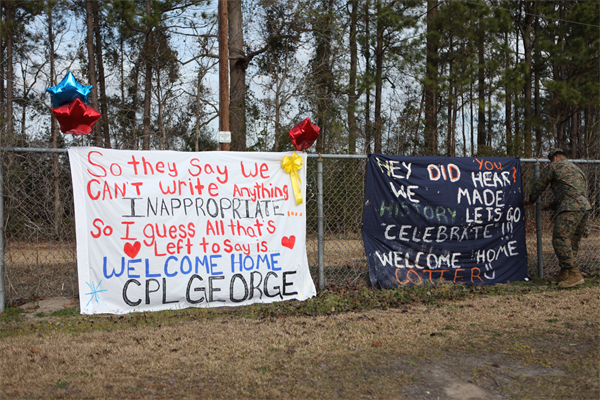 So they Say We
CAN'T WRite ANything
INAPPROPRIATE....
So I guess All that's
Left to Say is
WELCOME HOME
CPL GEORGE
HEY DID YOU
HEAR?
WE MADE
HISTORY LETS GO
"CELEBRATE"!!!
WELCOME HOME
COTTER